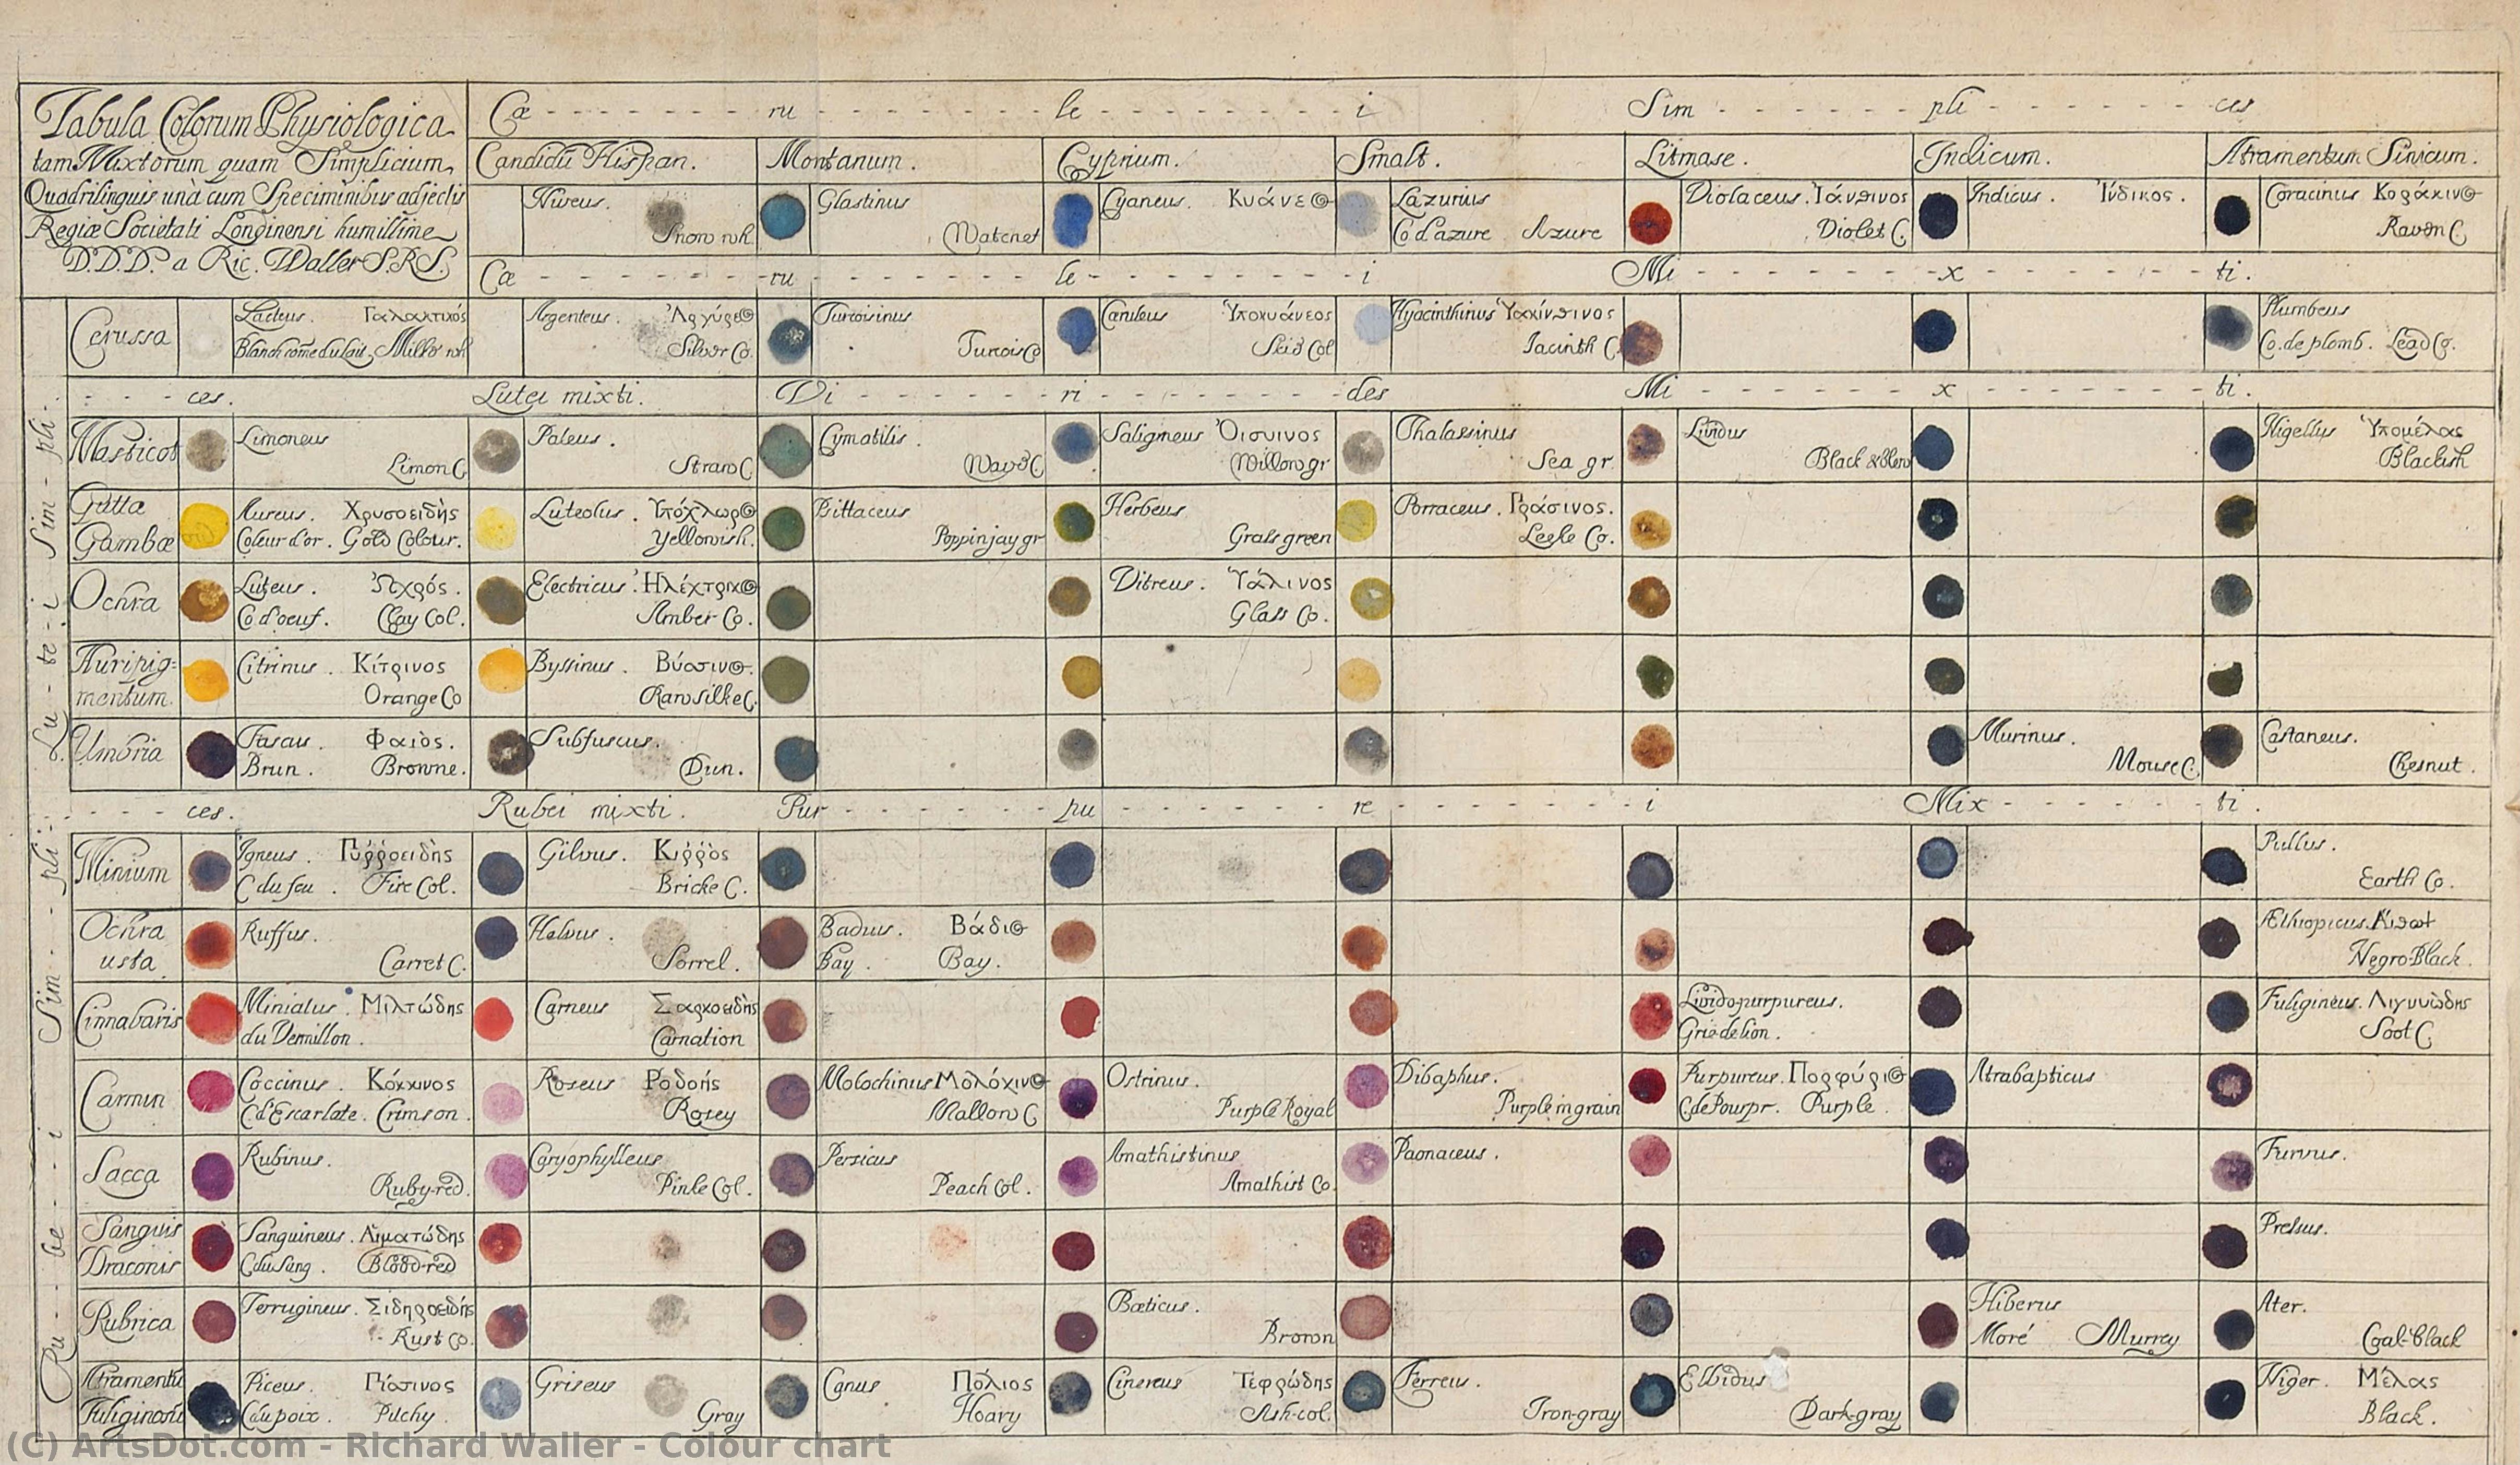 Tabula Colorum Physiologica
tam Mixtorum quam Simplicium,
Quadrilinguis unà cum Speciminibus adjectis
Regiæ Societati Londinensi humillime
D.D.D. a Ric. Waller S.R.S.
Cæ ru le i Sim pli ces
Candidū Hispan. Montanum. Cyprium. Smalt. Litmase. Indicum. Atramentum Sinicum.
Niveus. Glastinus Cyaneus. Κυάνεος Lazurius Violaceus. Ἰάνθινος Indicus. Ἴνδικος. Coracinus Κοράκινος
Snow wh. Watchet Co d'azure Azure Violet C. Raven C.
Cæ ru le i Mi x ti.
Cerussa Lacteus. Γαλακτικός Argenteus. Ἀργύρεος Turcoisinus Cæruleus Ὑποκυάνεος Hyacinthinus Ὑακίνθινος Plumbeus
Milke wh Silver Co. Turcois Co Skie Col Iacinth C. Co. de plomb. Lead Co.
Lu te i Sim pli ces. Lutei mixti. Vi ri des Mi x ti.
Masticot Limoneus Paleus. Cymatilis. Saligneus Ὀισυινος Thalassinus Lividus Nigellus Ὑπομέλας
Limon C. Straw C. Wave C. Willow gr Sea gr. Black & blew Blackish
Gutta Aureus. Χρυσοειδὴς Luteolus. Ὑπόχλωρος Psittaceus Herbeus Porraceus. Πράσινος.
Gambæ Coleur d'or. Gold Colour. Yellowish. Poppinjay gr Grass green Leeke Co.
Ochra Luteus. Ὠχρός. Electricus. Ἠλέκτρικος Vitreus. Ὑάλινος
Co d'oeuf. Clay Col. Amber Co. Glass Co.
Auripig= Citrinus. Κίτρινος Byssinus. Βύσσινος.
mentum. Orange Co Raw silke C.
Umbria Fuscus. Φαιὸς. Subfuscus. Murinus. Castaneus.
Brun. Browne. Dun. Mouse C. Chesnut.
Ru be i Sim pli ces. Rubei mixti. Pur pu re i Mix ti.
Minium Igneus. Πυῤῥοειδὴς Gilvus. Κιῤῥὸς Pullus.
C du feu. Fire Col. Bricke C. Earth Co.
Ochra Ruffus. Helvus. Badius. Βάδιος Æthiopicus.
usta. Carret C. Sorrel. Bay. Bay. Negro-Black.
Cinnabaris Miniatus. Μιλτώδης Carneus Σαρκοειδὴς Livido-purpureus. Fuligineus. Λιγνυώδης
du Vermillon. Carnation Gri-de-lion. Soot C.
Carmin Coccinus. Κόκκινος Roseus Molochinus Μολόχινος Ostrinus. Dibaphus. Purpureus. Πορφύριος Atrabapticus
C d'Escarlate. Crimson. Rosey Mallow C Purple Royal Purple in grain C de Pourpr. Purple.
Lacca Rubinus. Caryophylleus Persicus Amathistinus Paonaceus. Furvus.
Ruby-red. Pinke Col. Peach Col. Amathist Co.
Sanguis Sanguineus. Αἱματώδης Pressus.
Draconis C du Sang. Blood-red
Rubrica Ferrugineus. Σιδηροειδής Bœticus. Hiberus Ater.
Rust Co. Brown Moré Murrey Coal-black
Atramentū Piceus. Πίσσινος Griseus Canus Πόλιος Cinereus Τεφρώδης Ferreus. Elbidus Niger. Μέλας
Fuliginosū C du poix. Pitchy. Gray Hoary Ash-col. Iron-gray Dark-gray Black.
(C) ArtsDot.com - Richard Waller - Colour chart